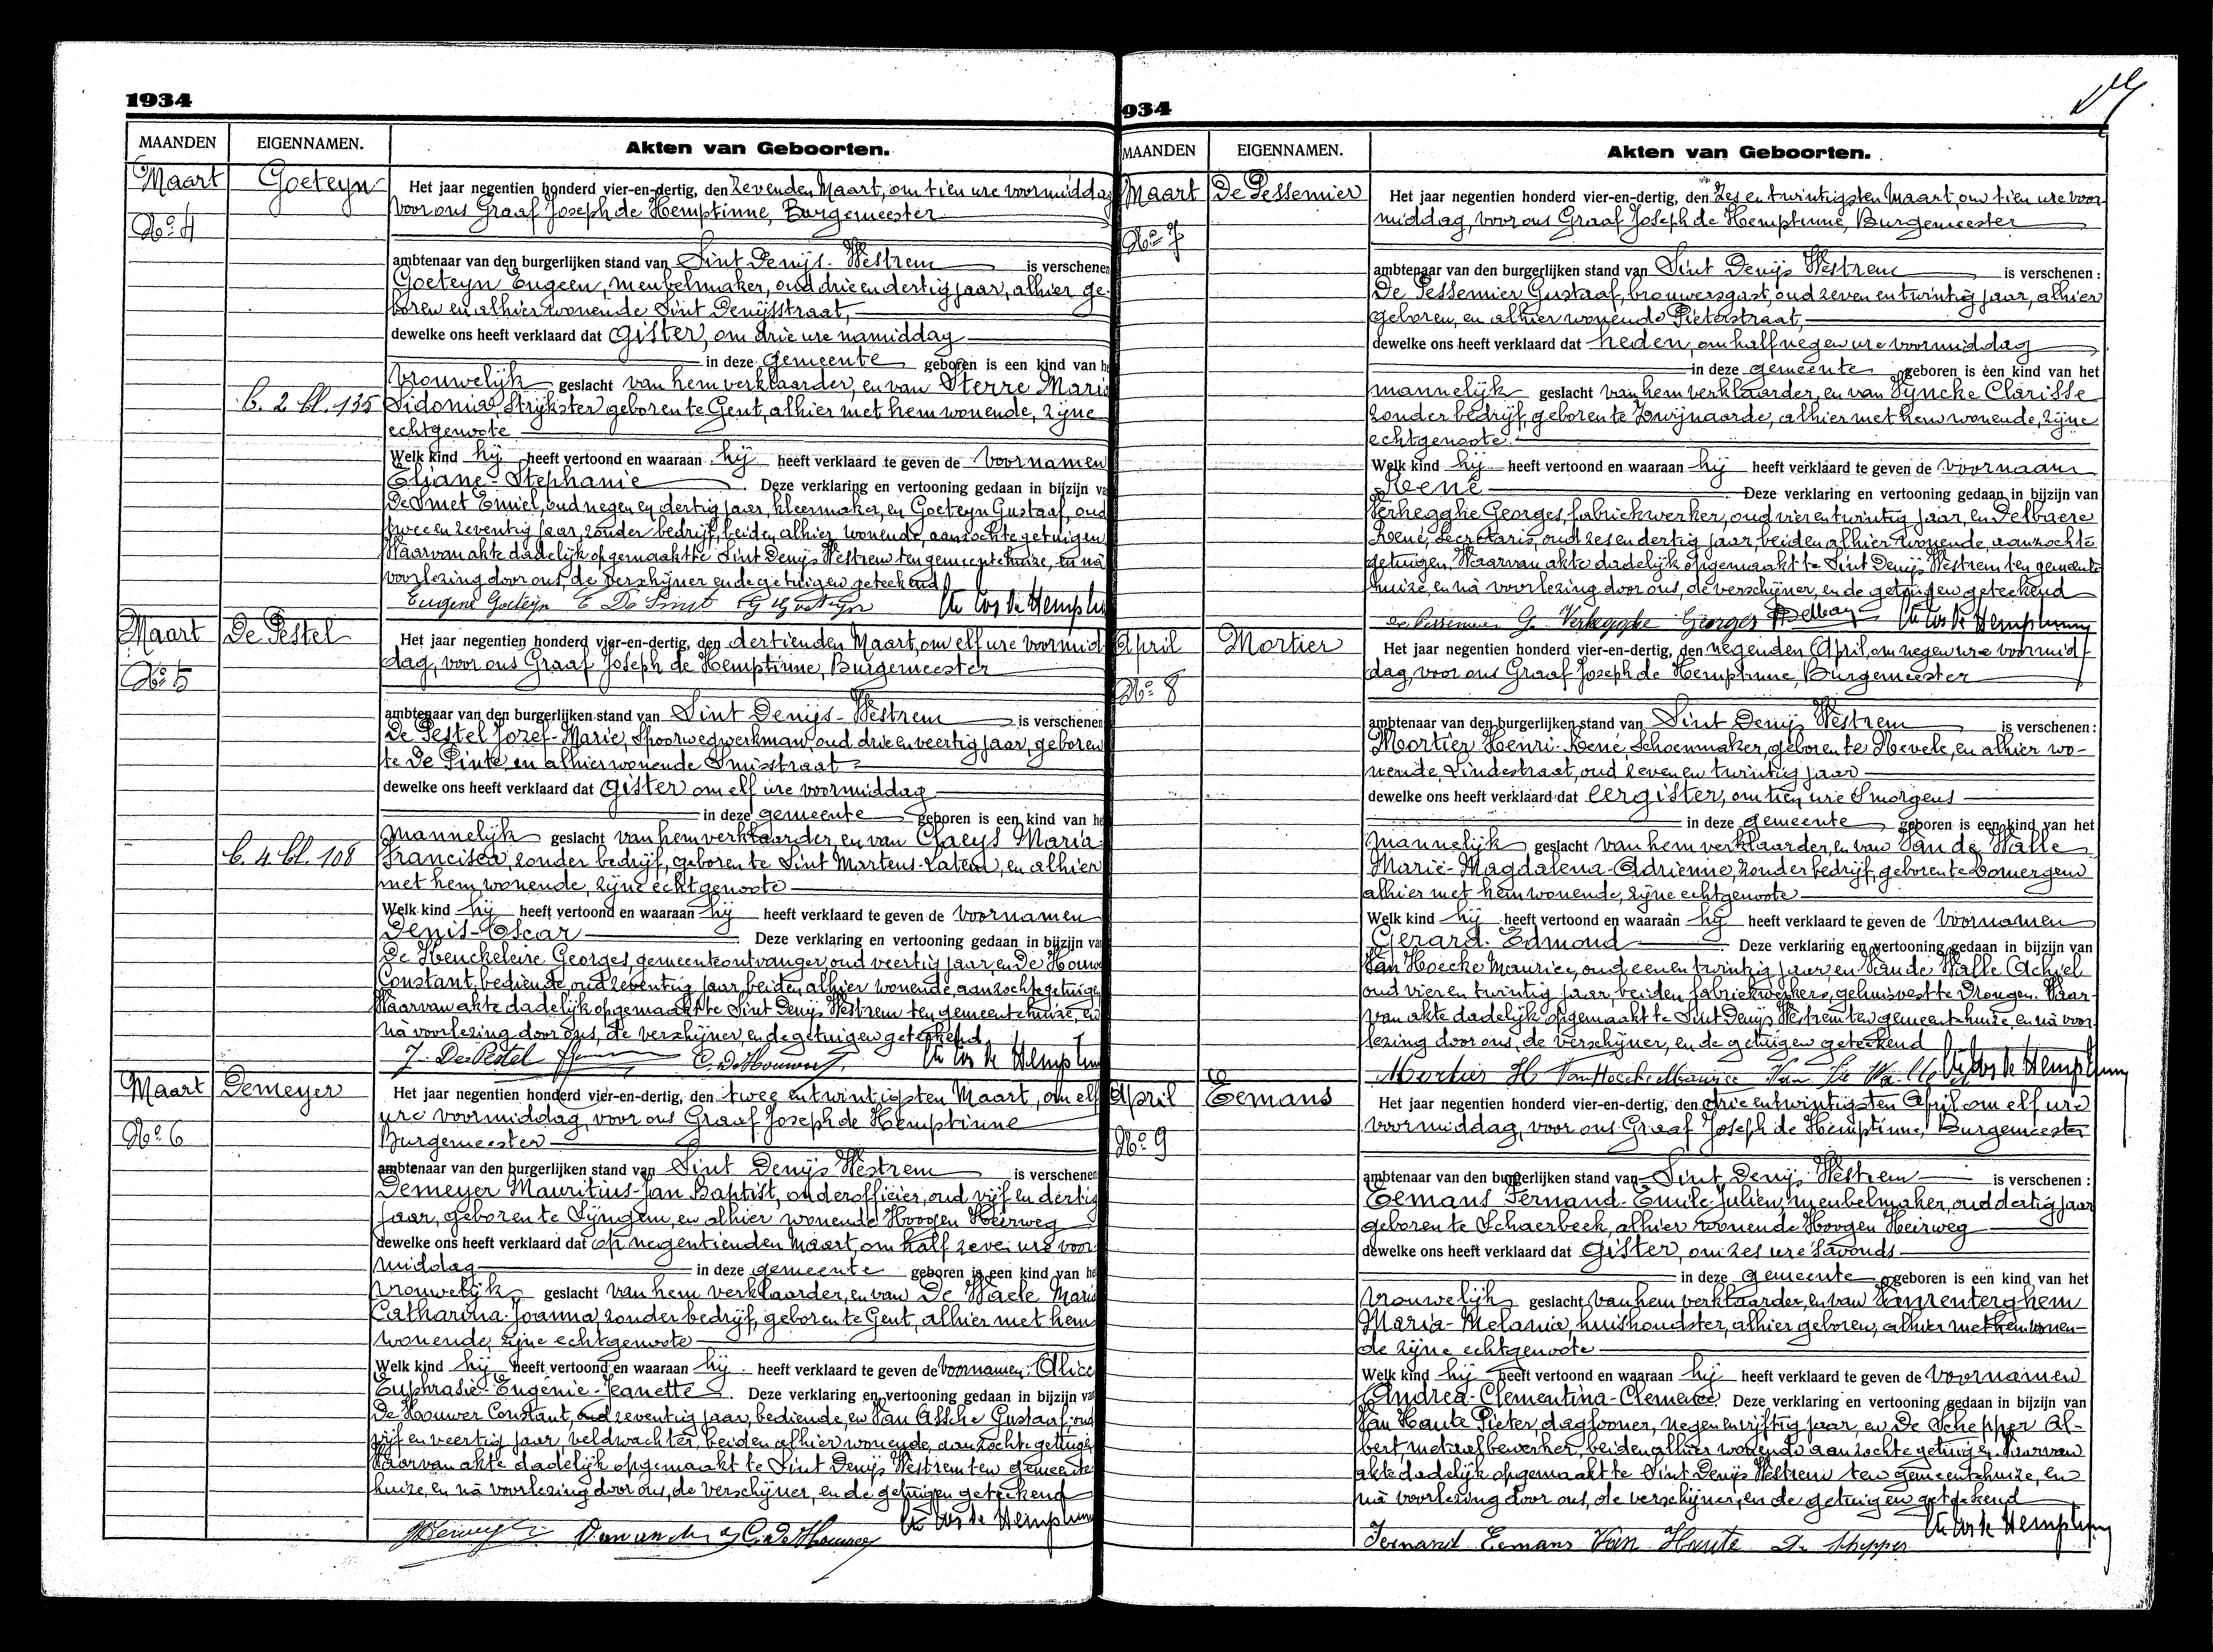 1934
MAANDEN EIGENNAMEN. Akten van Geboorten.
Maart Goeteyn
No 4
Het jaar negentien honderd vier-en-dertig, den Zevenden Maart, om tien ure voormiddag
voor ons Graaf Joseph de Hemptinne, Burgemeester
ambtenaar van den burgerlijken stand van Sint Denijs-Westrem is verschenen
Goeteyn Eugeen, meubelmaker, oud drie en dertig jaar, alhier ge-
boren en alhier wonende Sint Denijsstraat,
dewelke ons heeft verklaard dat Gister, om drie ure namiddag
in deze gemeente geboren is een kind van he
vrouwelijk geslacht van hem verklaarder, en van Sterre Maria
b. 2 bl. 135 Sidonia, Strijkster geboren te Gent, alhier met hem wonende, zijne
echtgenoote
Welk kind hij heeft vertoond en waaraan hij heeft verklaard te geven de voornamen
Eliane-Stephanie Deze verklaring en vertooning gedaan in bijzijn va
De Smet Emiel, oud negen en dertig jaar, kleermaker, en Goeteyn Gustaaf, oud
twee en zeventig jaar, zonder bedrijf, beiden alhier wonende, aanzochte getuigen
Waarvan akte dadelijk opgemaakt te Sint Denijs Westrem ten gemeentehuize, en nà
voorlezing door ons, de verschijner en de getuigen geteekend
Eugene Goeteyn E De Smet
Maart De Pestel
No 5
Het jaar negentien honderd vier-en-dertig, den dertienden Maart, om elf ure voormid
dag, voor ons Graaf Joseph de Hemptinne, Burgemeester
ambtenaar van den burgerlijken stand van Sint Denijs-Westrem is verschenen
De Pestel Jozef-Marie, Spoorwegwerkman, oud drie en veertig jaar, geboren
te De Pinte, en alhier wonende Smisstraat
dewelke ons heeft verklaard dat Gister om elf ure voormiddag
in deze gemeente geboren is een kind van he
mannelijk geslacht van hem verklaarder, en van Claeys Maria
b. 4 bl. 108 Francisca, zonder bedrijf, geboren te Sint Martens-Latem, en alhier
met hem wonende, zijne echtgenoote
Welk kind hij heeft vertoond en waaraan hij heeft verklaard te geven de voornamen
Denis-Oscar Deze verklaring en vertooning gedaan in bijzijn va
De Henckeleire Georges, gemeenteontvanger, oud veertig jaar, en De Houwer
Constant, bediende, oud zeventig jaar, beiden alhier wonende, aanzochte getuige
Waarvan akte dadelijk opgemaakt te Sint Denijs Westrem ten gemeentehuize, en
nà voorlezing door ons, de verschijner en de getuigen geteekend
J. De Pestel C. De Houwer
Maart Demeyer
No 6
Het jaar negentien honderd vier-en-dertig, den twee en twintigsten Maart, om elf
ure voormiddag, voor ons Graaf Joseph de Hemptinne
Burgemeester
ambtenaar van den burgerlijken stand van Sint Denijs Westrem is verschenen
Demeyer Mauritius-Jan Baptist, onderofficier, oud vijf en dertig
jaar, geboren te Syngem, en alhier wonende Hoogen Heirweg
dewelke ons heeft verklaard dat op negentienden Maart, om half zeven ure voor
middag in deze gemeente geboren is een kind van he
vrouwelijk geslacht van hem verklaarder, en van De Waele Maria
Catharina-Joanna, zonder bedrijf, geboren te Gent, alhier met hem
wonende, zijne echtgenoote
Welk kind hij heeft vertoond en waaraan hij heeft verklaard te geven de voornamen: Alice
Euphrasie-Eugénie-Jeanette Deze verklaring en vertooning gedaan in bijzijn va
De Houwer Constant, oud zeventig jaar, bediende, en Van Assche Gustaaf oud
vijf en veertig jaar, veldwachter, beiden alhier wonende, aanzochte getuige
Waarvan akte dadelijk opgemaakt te Sint Denijs Westrem ten gemeente
huize, en nà voorlezing door ons, de verschijner, en de getuigen geteekend
C. De Houwer
934
MAANDEN EIGENNAMEN. Akten van Geboorten.
Maart De Pessemier
No 7
Het jaar negentien honderd vier-en-dertig, den Zes en twintigsten Maart, om tien ure voor-
middag, voor ons Graaf Joseph de Hemptinne, Burgemeester
ambtenaar van den burgerlijken stand van Sint Denijs Westrem is verschenen:
De Pessemier Gustaaf, brouwersgast, oud zeven en twintig jaar, alhier
geboren, en alhier wonende Pieterstraat,
dewelke ons heeft verklaard dat heden, om half negen ure voormiddag
in deze gemeente geboren is een kind van het
mannelijk geslacht van hem verklaarder, en van Syncke Clarisse
zonder bedrijf, geboren te Zwijnaarde, alhier met hem wonende, zijne
echtgenoote.
Welk kind hij heeft vertoond en waaraan hij heeft verklaard te geven de voornaam
René Deze verklaring en vertooning gedaan in bijzijn van
Verhegghe Georges, fabriekwerker, oud vier en twintig jaar, en Delbaere
René, Secretaris, oud zes en dertig jaar, beiden alhier wonende, aanzochte
getuigen. Waarvan akte dadelijk opgemaakt te Sint Denijs Westrem ten gemeente
huize, en nà voorlezing door ons, de verschijner, en de getuigen geteekend
De Pessemier G. Verhegghe Georges
April Mortier
No 8
Het jaar negentien honderd vier-en-dertig, den negenden April, om negen ure voormid
dag, voor ons Graaf Joseph de Hemptinne, Burgemeester
ambtenaar van den burgerlijken stand van Sint Denijs Westrem is verschenen:
Mortier Henri-René, Schoenmaker, geboren te Nevele, en alhier wo-
nende, Lindestraat, oud zeven en twintig jaar
dewelke ons heeft verklaard dat eergister, om tien ure Smorgens
in deze gemeente geboren is een kind van het
mannelijk geslacht van hem verklaarder, en van Van de Walle
Marie-Magdalena-Adrienne, zonder bedrijf, geboren te Lovergem
alhier met hem wonende, zijne echtgenoote
Welk kind hij heeft vertoond en waaraan hij heeft verklaard te geven de voornamen
Gerard-Edmond Deze verklaring en vertooning gedaan in bijzijn van
Van Hoecke Maurice, oud een en twintig jaar en Van de Walle Achiel
oud vier en twintig jaar, beiden fabriekwerkers, gehuisvest te Drongen. Waar-
van akte dadelijk opgemaakt te Sint Denijs Westrem ten gemeentehuize, en nà voor
lezing door ons, de verschijner, en de getuigen geteekend
Mortier H. Van Hoecke Maurice
April Eemans
No 9
Het jaar negentien honderd vier-en-dertig, den drie en twintigsten April om elf ure
voormiddag, voor ons Graaf Joseph de Hemptinne, Burgemeester
ambtenaar van den burgerlijken stand van Sint Denijs Westrem is verschenen:
Eemans Fernand-Emile-Julien, meubelmaker, oud dertig jaar
geboren te Schaerbeek, alhier wonende Hoogen Heirweg
dewelke ons heeft verklaard dat Gister, om zes ure Savonds
in deze gemeente geboren is een kind van het
vrouwelijk geslacht van hem verklaarder, en van Vanrenterghem
Maria-Melania, huishoudster, alhier geboren, alhier met hem wonen-
de zijne echtgenoote
Welk kind hij heeft vertoond en waaraan hij heeft verklaard te geven de voornamen
Andrea-Clementina-Clemence. Deze verklaring en vertooning gedaan in bijzijn van
Van Haute Pieter, daglooner, negen en vijftig jaar, en De Schepper Al-
bert, metaalbewerker, beiden alhier wonende aanzochte getuigen. Waarvan
akte dadelijk opgemaakt te Sint Denijs Westrem ten gemeentehuize, en
nà voorlezing door ons, de verschijner, en de getuigen geteekend
Fernand Eemans Van Haute De Schepper